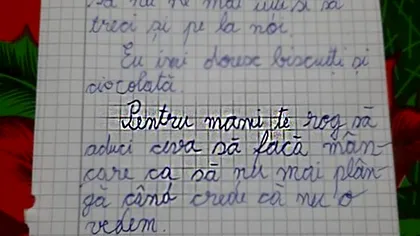 să nu ne mai uiți să
treci și pe la noi.
Eu îmi doresc biscuiți și
ciocolată.
Pentru mami te rog să
aduci ceva să facă mân-
care ca să nu mai plân-
gă când crede că nu o
vedem.